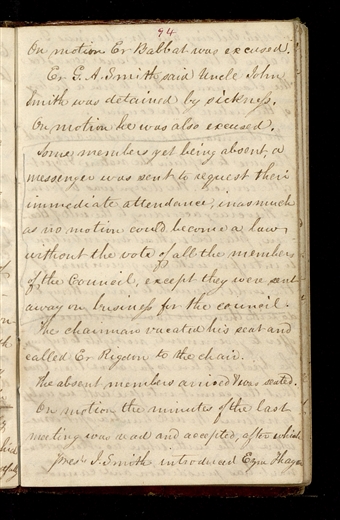 94
On motion Er Babbat was excused.
Er G. A. Smith said Uncle John
Smith was detained by sickness.
On motion he was also excused.
Some members yet being absent, a
messenger was sent to request their
immediate attendance; inasmuch
as no motion could become a law
without the vote of all the members
of the Council, except they were sent
away on business for the council.
The chairman vacated his seat and
called Er Rigdon to the chair.
The absent members arrived & was seated.
On motion the minutes of the last
meeting was read and accepted, after which
Prest J. Smith introduced Ezra Thayer